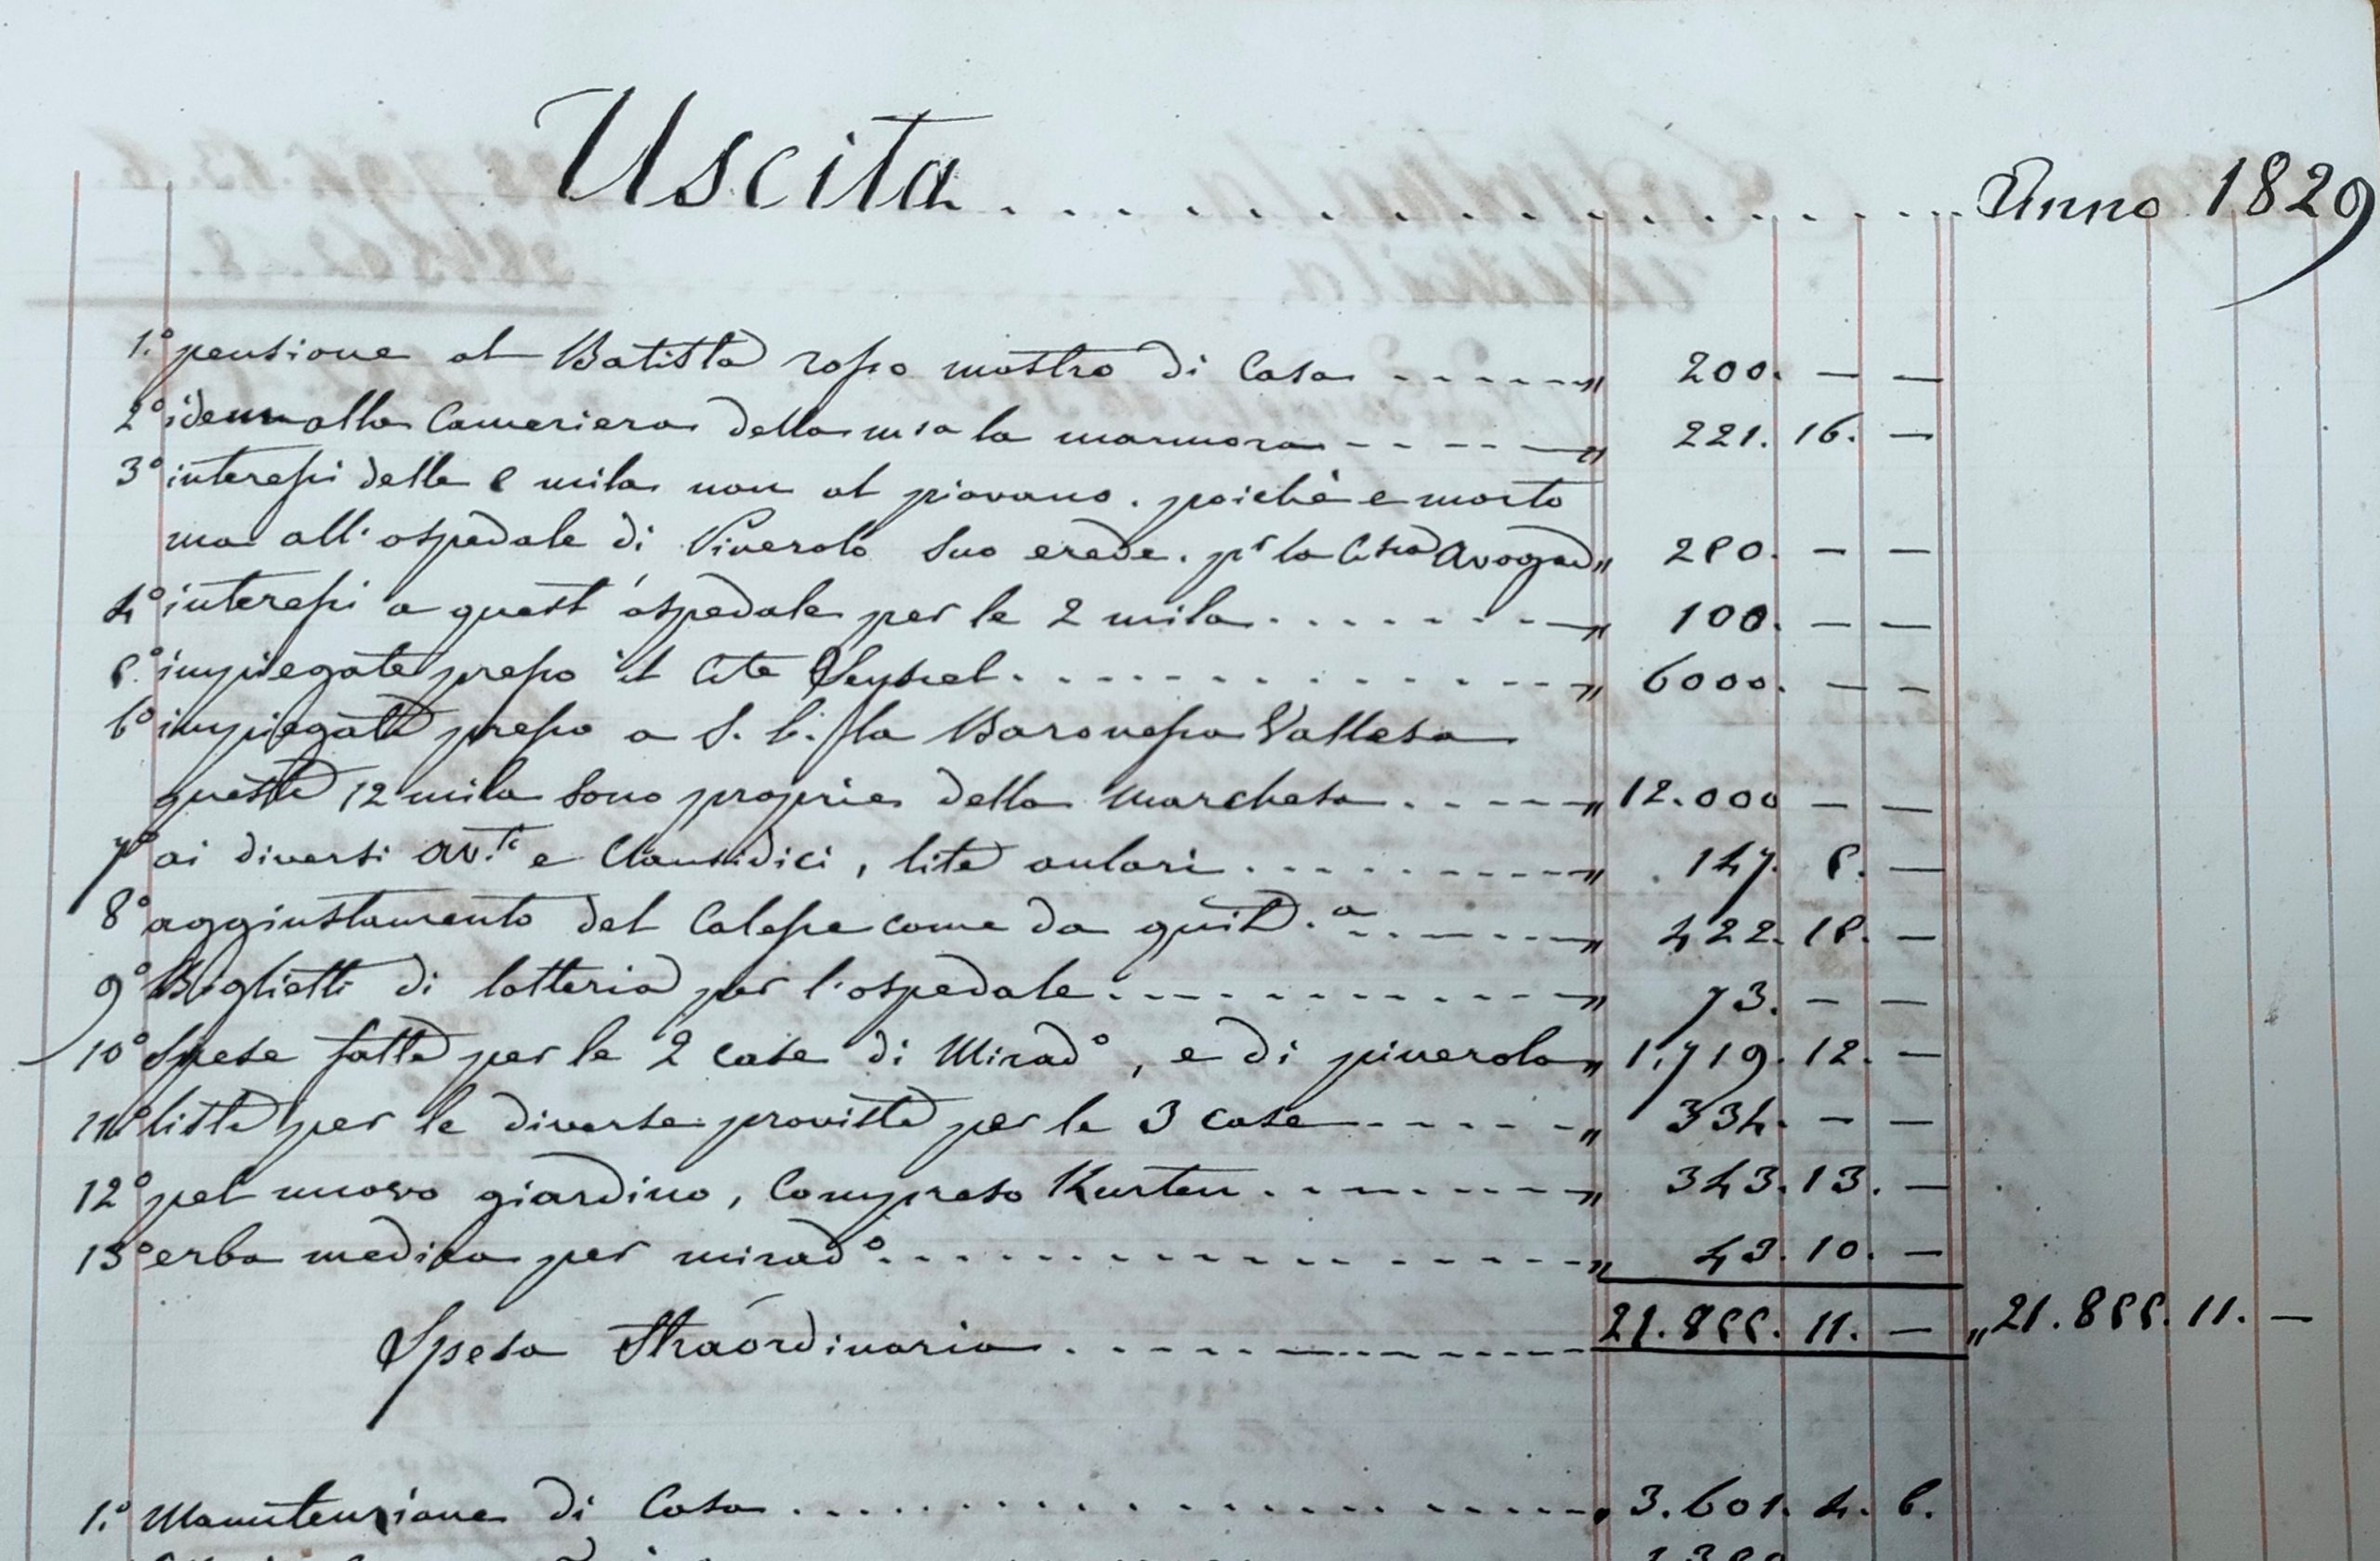 Uscita .................. Anno 1829
1.° pensione al Batista rosso mastro di Casa ------ „ 200. — —
2° idem alla Cameriera della m.sa la marmora ----- „ 221. 16. —
3° interessi delle 5 mila non al piovano. poichè e morto
ma all'ospedale di Pinerolo suo erede. pr la Ctssa Avogad° „ 250. — —
4° interessi a quest'ospedale per le 2 mila ........ „ 100. — —
5.° impiegate presso il Cte Peyssel ............ „ 6000. — —
6° impiegate presso a S. E. la Baronessa Vallesa
queste 12 mila sono proprie della Marchesa ..... „ 12.000 — —
7° ai diversi av.ti e Causidici, lite aulari ......... „ 147. 5. —
8° aggiustamento del Calesse come da quit.a ...... „ 422. 15. —
9° Biglietti di lotteria per l'ospedale ............ „ 73. — —
10° Spese fatte per le 2 case di Mirad°, e di pinerolo „ 1.719. 12. —
11° liste per le diverse proviste per le 3 case ------ „ 334. — —
12° pel nuovo giardino, Compreso Kurten ........ „ 343. 13. —
13° erba medica per mirad° ................ „ 43. 10. —
Spesa Straordinaria ............ 21.855. 11. — „ 21.855. 11. —
1.° Manutenzione di Casa ................ „ 3.601. 4. 6.